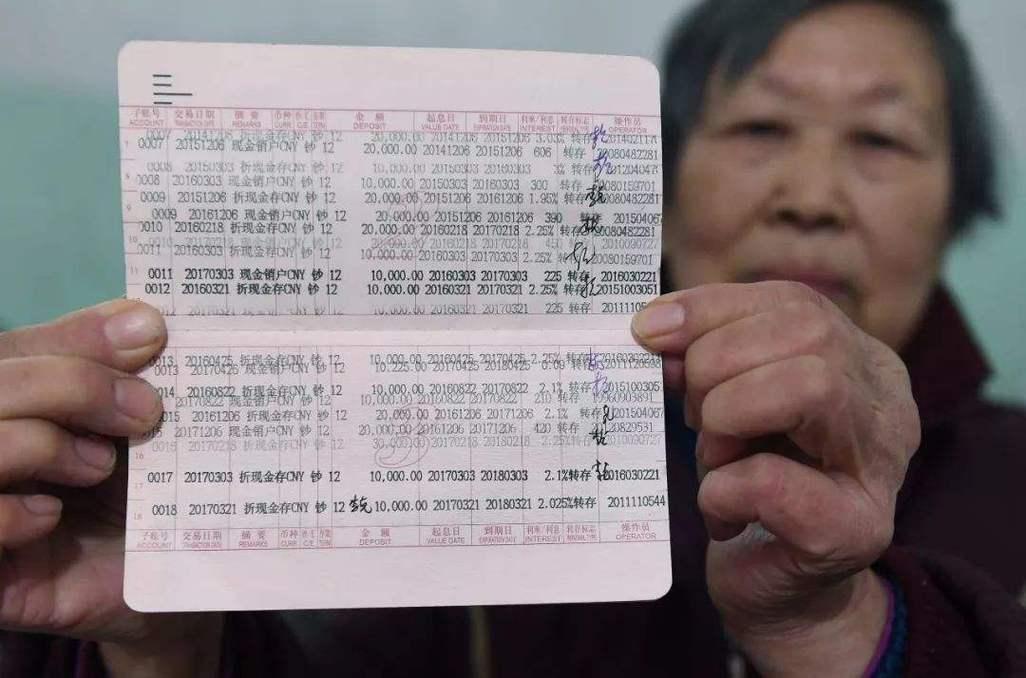 子账号 交易日期 摘 要 币种 金 额 起息日 到期日 利率/利息 转存标志 操作员
ACCOUNT TRANSACTION DATE REMARKS CURR C/E TERM DEPOSIT VALUE DATE EXPIRATION DATE INTEREST OPERATOR
0007 20141206 现金存CNY 钞 12 20,000.00 20141206 20151206 3.03% 转存
0007 20151206 现金销户CNY 钞 12 20,000.00 20141206 20151206 606 转存 20080482281
0008 20150303 折现金存CNY 钞 12 10,000.00 20150303 20160303 转存
0008 20160303 现金销户CNY 钞 12 10,000.00 20150303 20160303 300 转存 20080159701
0009 20151206 折现金存CNY 钞 12 20,000.00 20151206 20161206 1.95% 转存 20080482281
0009 20161206 现金销户CNY 钞 12 20,000.00 20151206 20161206 390 转存 201504067
0010 20160218 折现金存CNY 钞 12 20,000.00 20160218 20170218 2.25% 转存 20080482281
20,000.00 20160218 20170218 450 转存 2010090727
0011 20160303 折现金存CNY 钞 12 10,000.00 20160303 20170303 2.25% 转存 20080159701
0011 20170303 现金销户CNY 钞 12 10,000.00 20160303 20170303 225 转存 2016030221
0012 20160321 折现金存CNY 钞 12 10,000.00 20160321 20170321 2.25% 转存 20151003051
0012 20170321 现金销户CNY 钞 12 10,000.00 20160321 20170321 225 转存 2011110544
0013 20160425 折现金存CNY 钞 12 10,000.00 20160425 20170425 2.25% 转存
0013 20170426 现金销户CNY 钞 12 10,225.00 20170425 转存
0014 20160822 折现金存CNY 钞 12 10,000.00 20160822 20170822 2.1% 转存 20151003051
10,000.00 20160822 20170822 210 转存 19960903891
0015 20161206 折现金存CNY 钞 12 20,000.00 20161206 20171206 2.1% 转存 201504067
0015 20171206 现金销户CNY 钞 12 20,000.00 20161206 20171206 420 转存 20120829531
20170218 折现金存CNY 钞 12 30,000.00 20170218 20180218 2.25% 转存 2010090727
0017 20170303 折现金存CNY 钞 12 10,000.00 20170303 20180303 2.1% 转存 2016030221
0018 20170321 折现金存CNY 钞 12 10,000.00 20170321 20180321 2.025% 转存 2011110544
子账号 交易日期 摘 要 币种 金 额 起息日 到期日 利率/利息 转存标志 操作员
ACCOUNT TRANSACTION DATE REMARKS CURR C/E TERM DEPOSIT VALUE DATE EXPIRATION DATE INTEREST OPERATOR